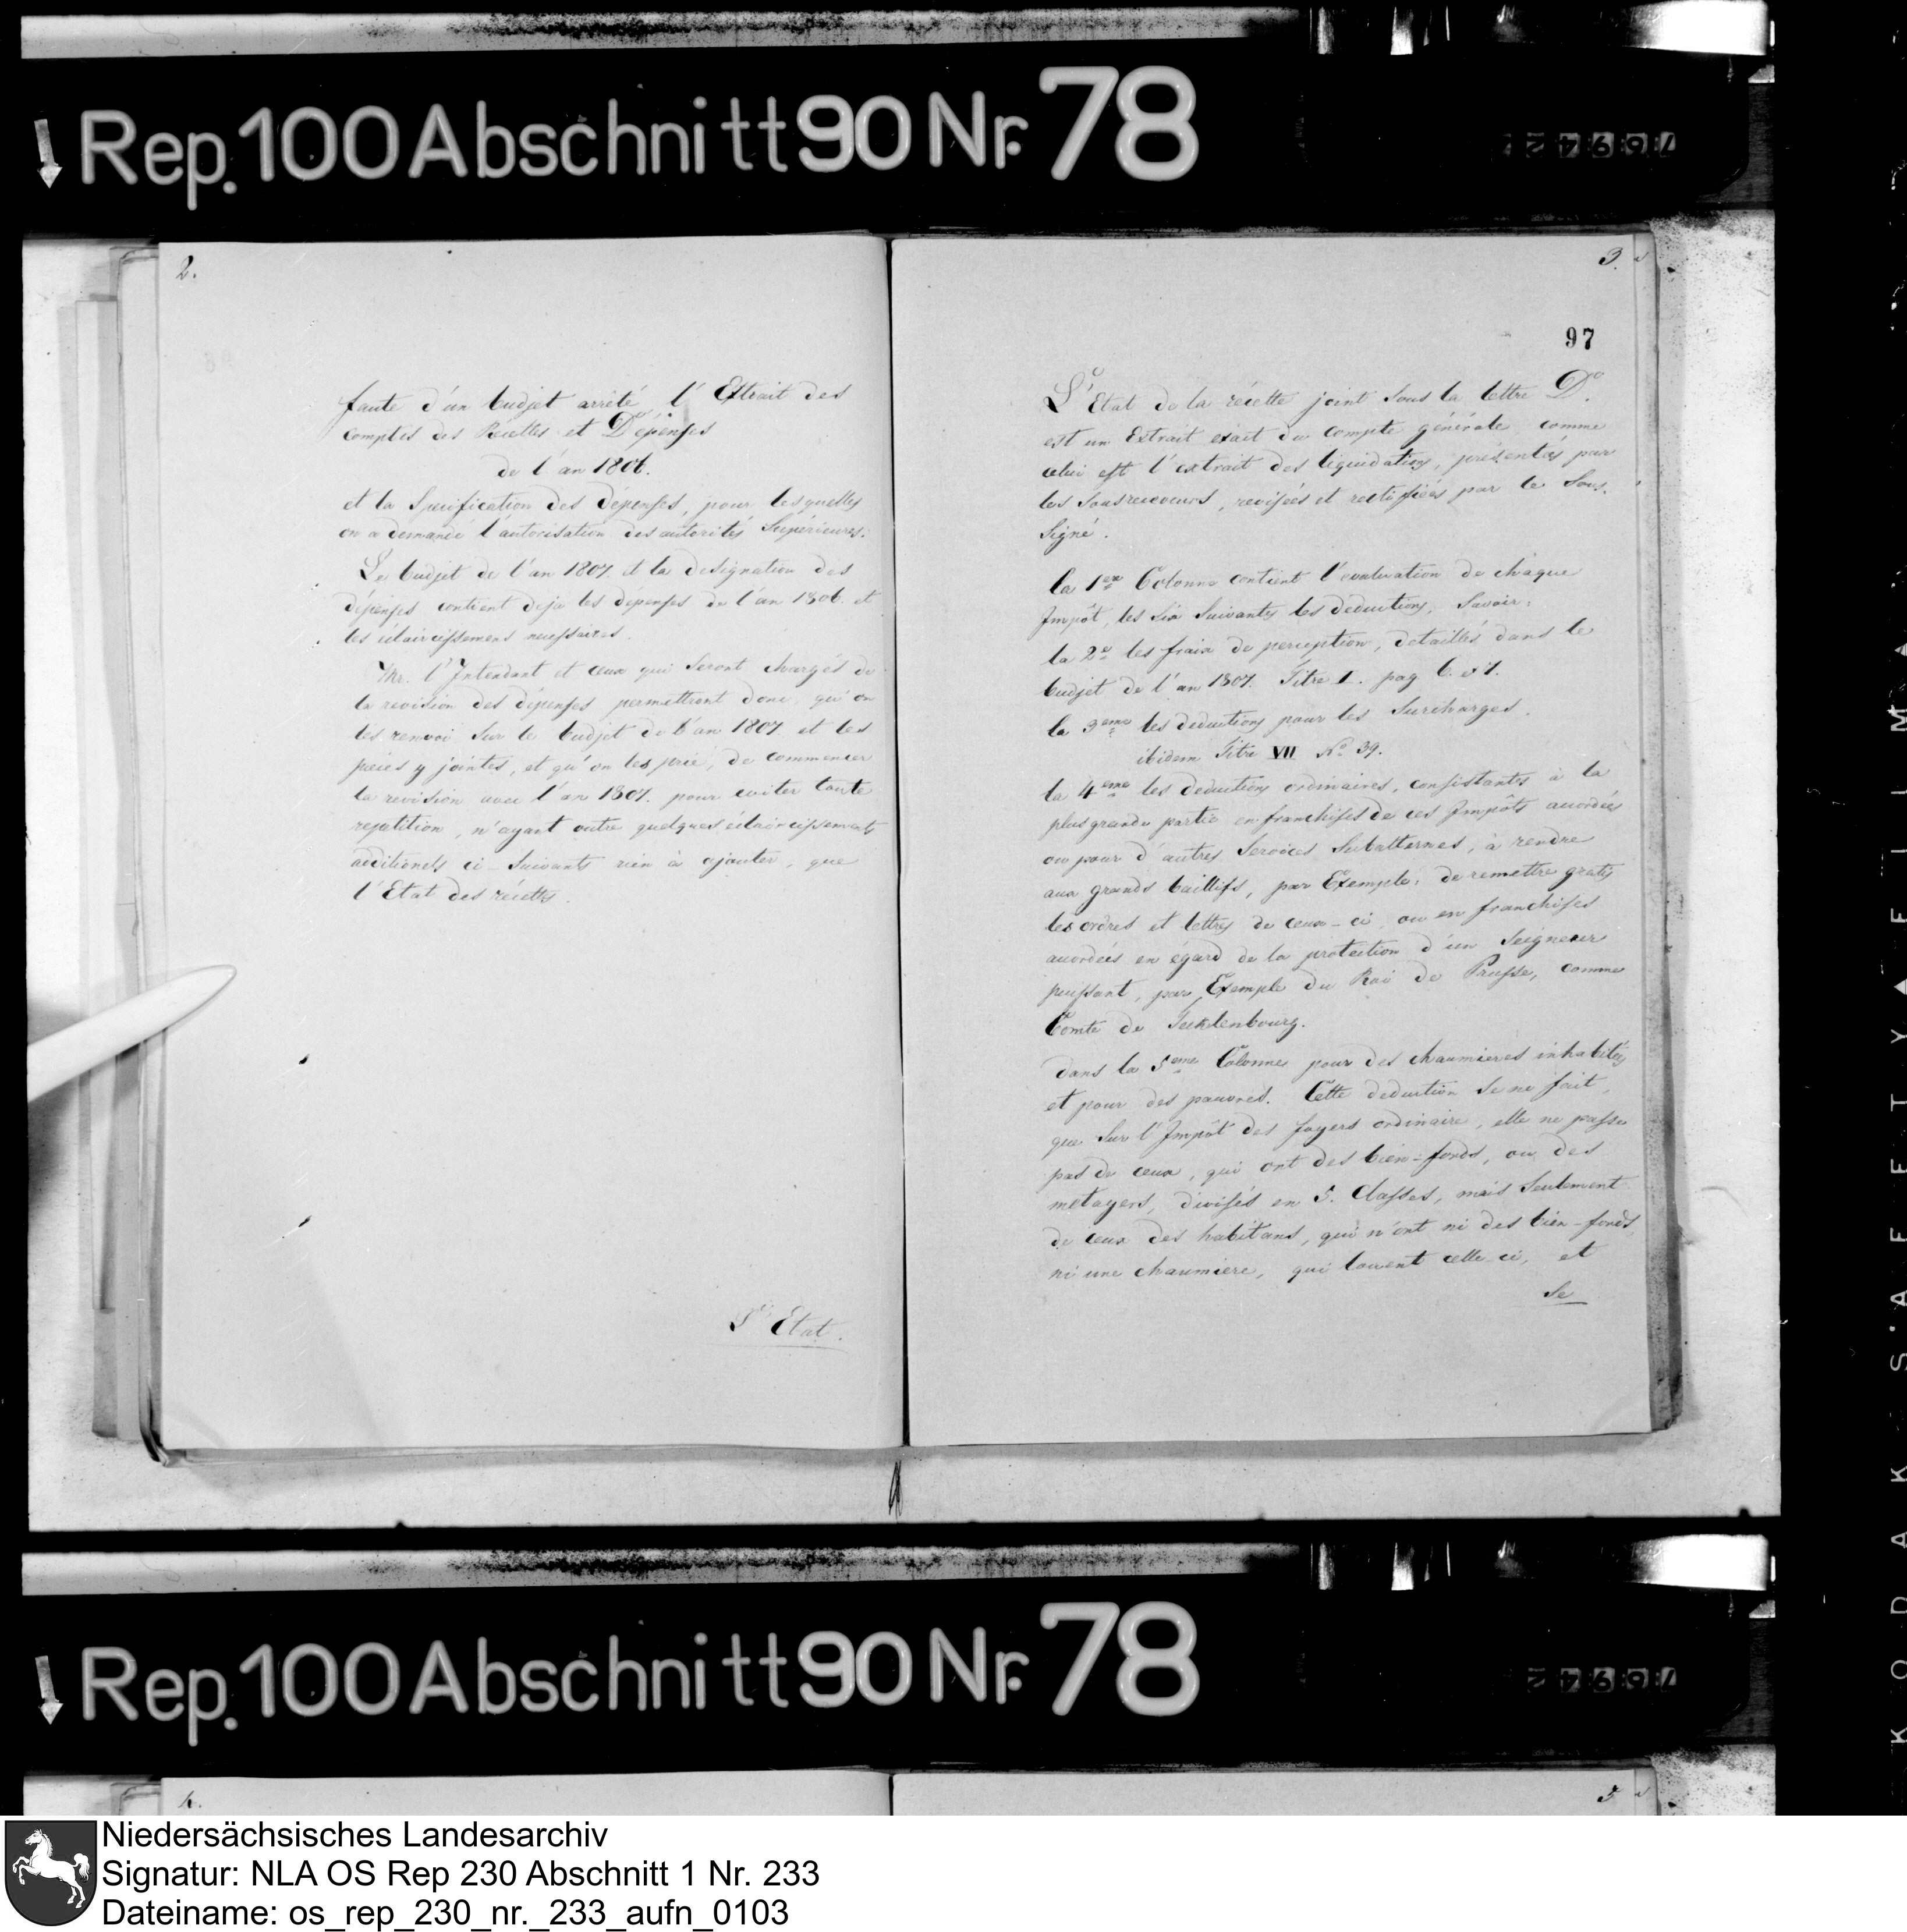 Rep. 100 Abschnitt 90 Nr. 78
76942
2.
faute d'un budjet arrêté, l'Extrait des
comptes des Recettes et Dépenses
de l'an 1806.
et la Specification des dépenses, pour lesquelles
on a demandé l'autorisation des autorités Supérieures.
Le budjet de l'an 1807. et la designation des
dépenses contient deja les depenses de l'an 1806. et
les éclaircissemens necessaires.
Mr. l'Intendant et ceux qui seront chargés de
la revision des dépenses permettront donc, qu'on
les renvoi sur le budjet de l'an 1807 et les
pieces y jointes, et qu'on les prie, de commencer
la revision avec l'an 1807. pour eviter toute
repetition, n'ayant outre quelques éclaircissements
additionels ci-suivants rien à ajouter, que
l'Etat des récettes.
L'Etat.
3.
97
L'Etat de la récette joint sous la lettre D.
est un Extrait exact du compte générale, comme
celui est l'extrait des liquidations, présentés par
les sousreceveurs, revisées et rectifiées par le Sous-
Signé.
la 1ere Colonne contient l'evaluation de chaque
Impôt, les six suivantes les deductions, Savoir:
la 2e les fraix de perception, detaillés dans le
budjet de l'an 1807. Titre I. pag 6. et 7.
la 3eme les deductions pour les Surcharges.
ibidem Titre VII No 39.
la 4eme les deductions ordinaires, consistantes à la
plus grande partie en franchises de ces Impôts accordées
ou pour d'autres Services Subalternes, à rendre
aux grands baillifs, par Exemple: de remettre gratis
les ordres et lettres de ceux-ci, ou en franchises
accordées en égard de la protection d'un Seigneur
puissant, par Exemple du Roi de Prusse, comme
Comte de Tecklenbourg.
dans la 5eme Colonne pour des chaumieres inhabitées
et pour des pauvres. Cette deduction se ne fait,
que sur l'Impôt des foyers ordinaire, elle ne passe
pas de ceux, qui ont des bien-fonds, ou des
metayers, divisés en 5. Classes, mais seulement
de ceux des habitans, qui n'ont ni des bien-fonds,
ni une chaumiere, qui louent celle-ci, et
se
Rep. 100 Abschnitt 90 Nr. 78
76942
4.
5
KODAK SAFETY FILM
Niedersächsisches Landesarchiv
Signatur: NLA OS Rep 230 Abschnitt 1 Nr. 233
Dateiname: os_rep_230_nr._233_aufn_0103